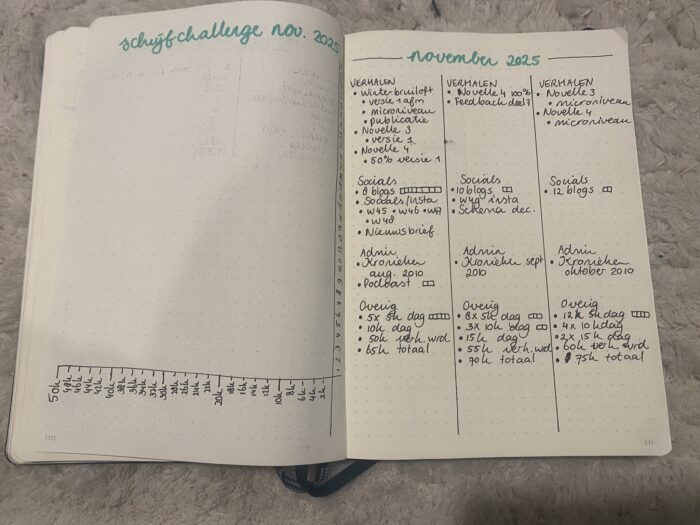 schrijfchallenge nov. 2025
1 2 3 4 5 6 7 8 9
50k 48k 46k 44k 42k 40k 38k 36k 34k 32k 30k 28k 26k 24k 22k 20k 18k 16k 14k 12k 10k 8k 6k 4k 2k
110
november 2025
VERHALEN
• Winterbruiloft
• versie 1 afm
• microniveau
• publicatie
• Novelle 3
• versie 1
• Novelle 4
• 50% versie 1
Socials
• 8 blogs
• Socials/insta
• w45 • w46 • w47
• w48
• Nieuwsbrief
Admin
• Kronieken
aug. 2010
• Podcast
Overig
• 5x 5k dag
• 10k dag
• 50k verh. wrd
• 65k totaal
VERHALEN
• Novelle 4 100%
• Feedback deel 7
Socials
• 10 blogs
• w49 insta
• Schema dec.
Admin
• Kronieken sept
2010
Overig
• 8x 5k dag
• 3x 10k dag
• 15k dag
• 55k verh. wrd
• 70k totaal
VERHALEN
• Novelle 3
• microniveau
• Novelle 4
• microniveau
Socials
• 12 blogs
Admin
• Kronieken
oktober 2010
Overig
• 12x 5k dag
• 4x 10k dag
• 2x 15k dag
• 60k verh. wrd
• 75k totaal
111